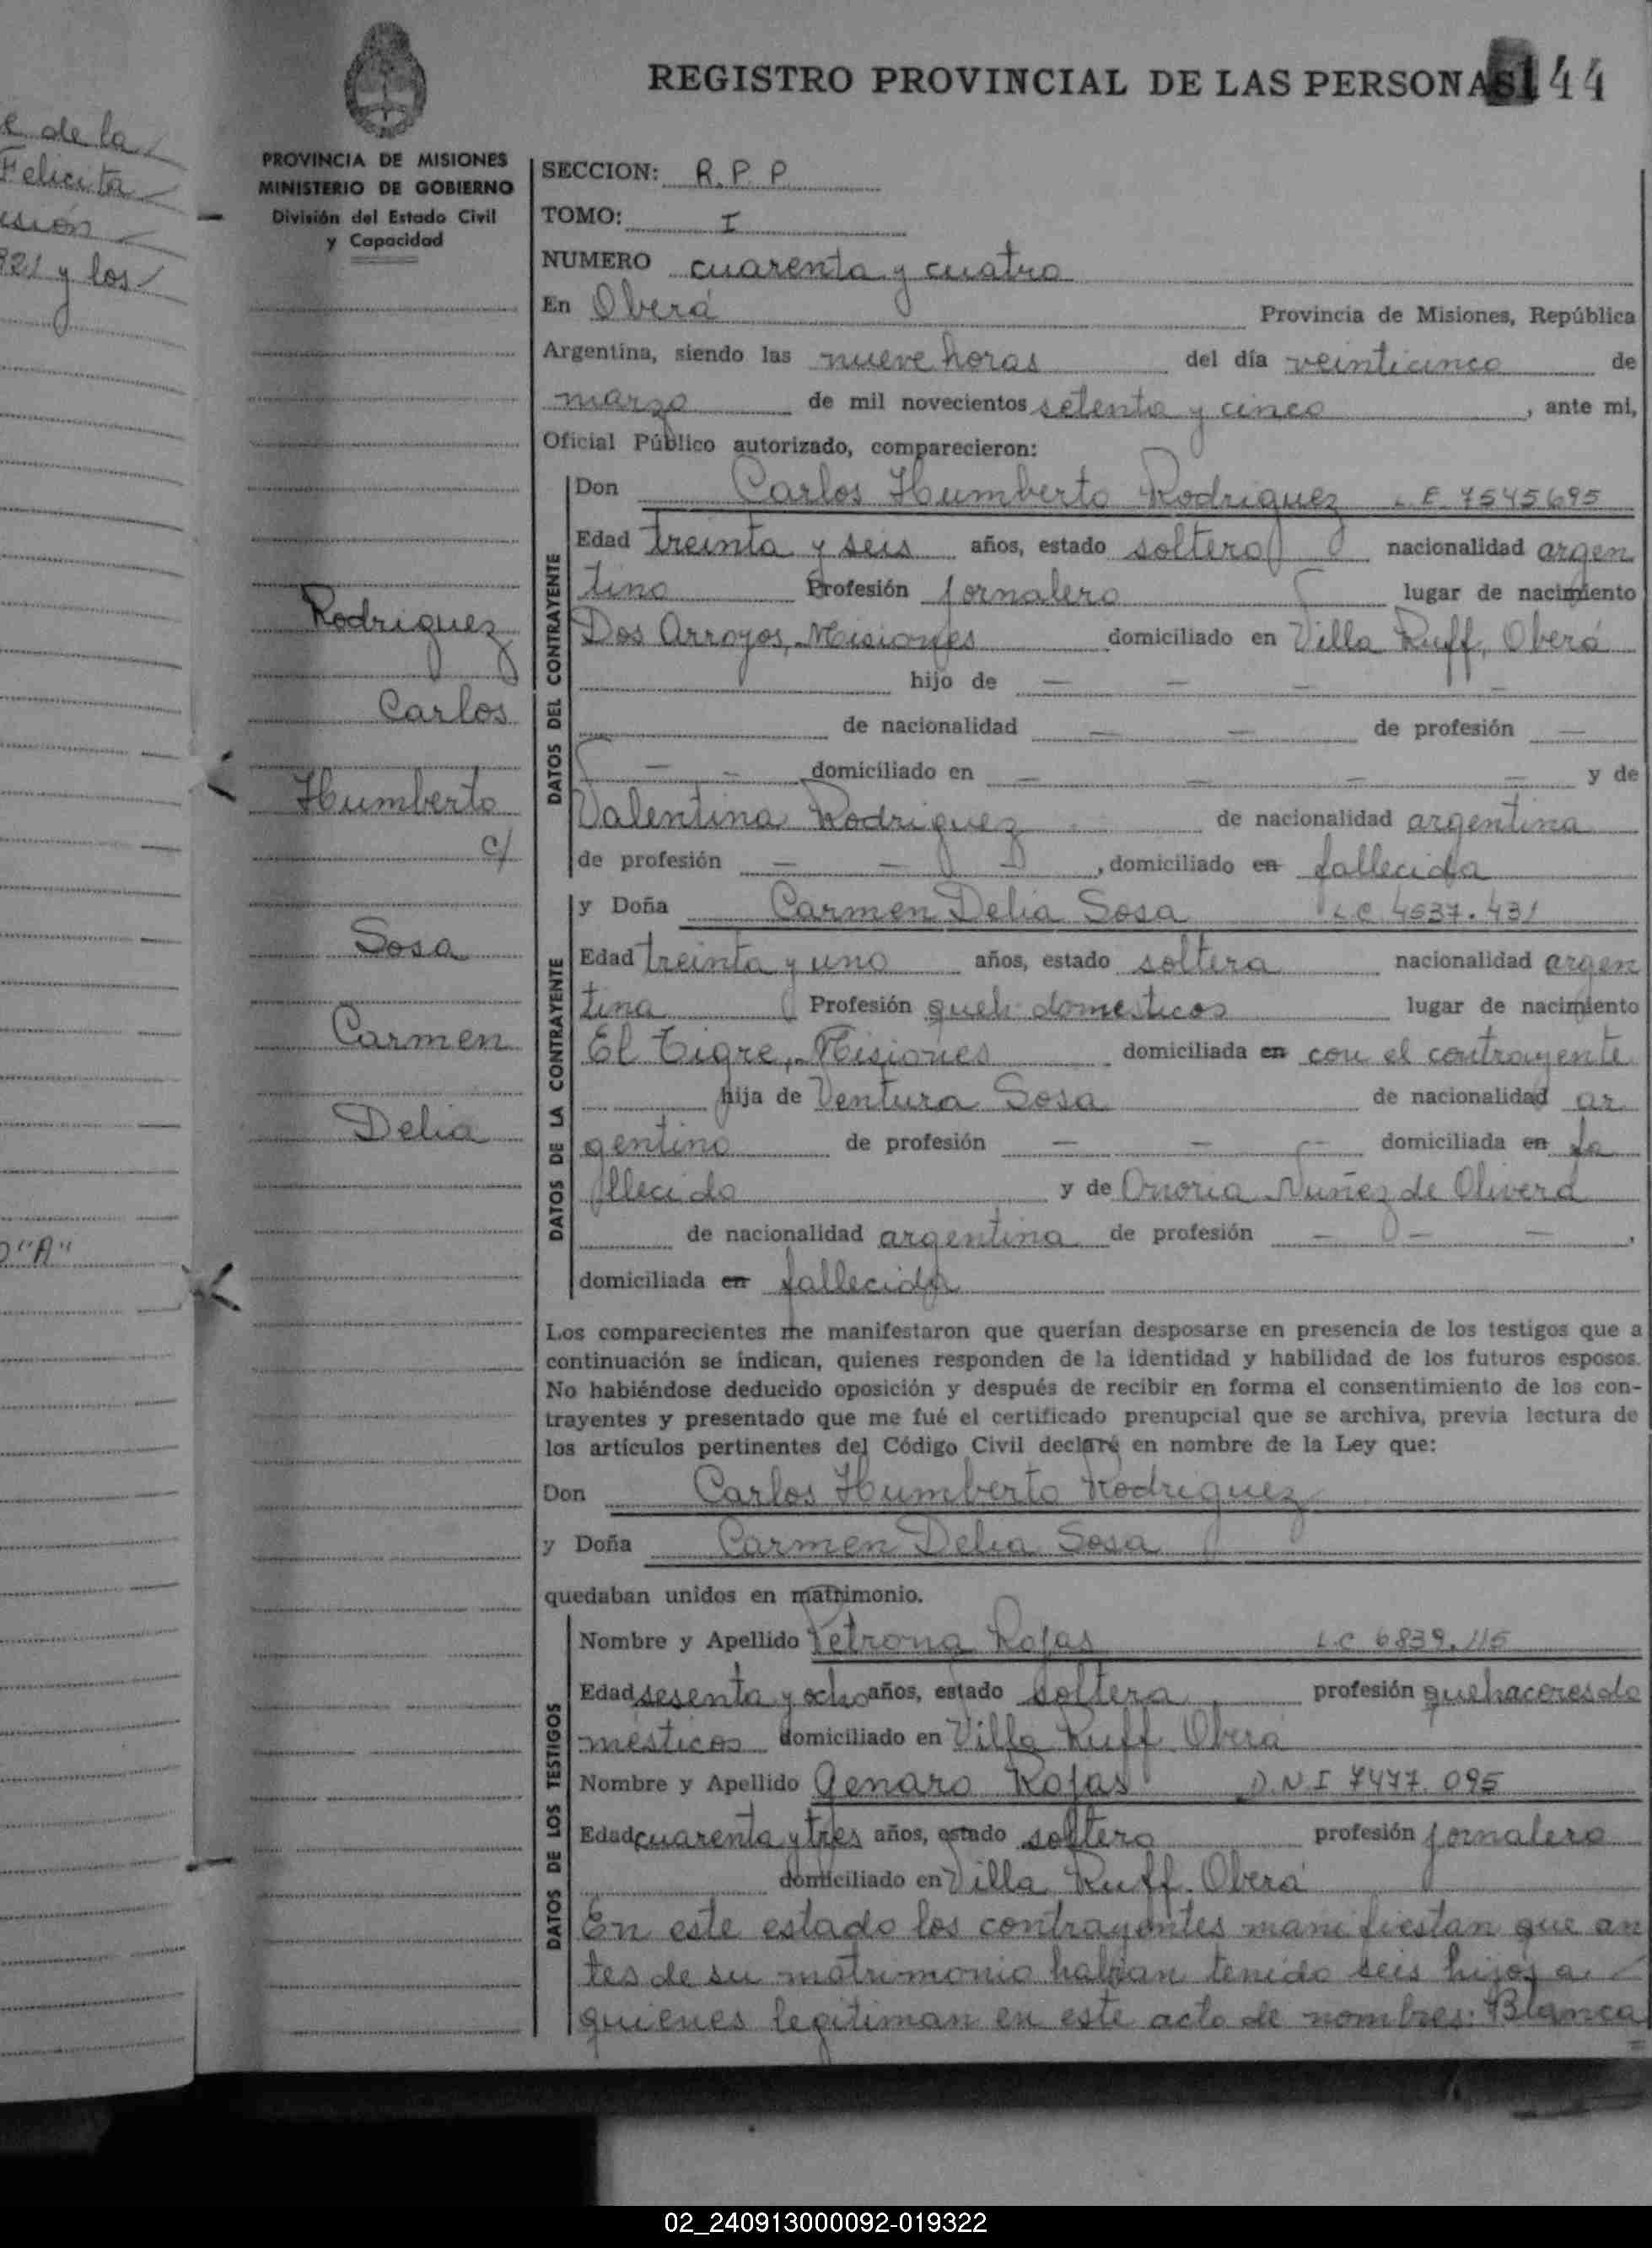 e de la
Felicita
esión
921 y los
o "A"
REGISTRO PROVINCIAL DE LAS PERSONAS 144
PROVINCIA DE MISIONES
MINISTERIO DE GOBIERNO
División del Estado Civil
y Capacidad
Rodriguez
Carlos
Humberto
c/
Sosa
Carmen
Delia
SECCION: R.P.P
TOMO: I
NUMERO cuarenta y cuatro
En Oberá Provincia de Misiones, República
Argentina, siendo las nueve horas del día veinticinco de
marzo de mil novecientos setenta y cinco, ante mi,
Oficial Público autorizado, comparecieron:
DATOS DEL CONTRAYENTE
Don Carlos Humberto Rodriguez L.E. 7545695
Edad treinta y seis años, estado soltero nacionalidad argen
tino Profesión jornalero lugar de nacimiento
Dos Arroyos, Misiones domiciliado en Villa Ruff, Oberá
hijo de — — — —
de nacionalidad — — de profesión —
— — domiciliado en — — — — y de
Valentina Rodriguez de nacionalidad argentina
de profesión — — —, domiciliado en fallecida
DATOS DE LA CONTRAYENTE
y Doña Carmen Delia Sosa L.C 4537.431
Edad treinta y uno años, estado soltera nacionalidad argen
tina Profesión queh. domesticos lugar de nacimiento
El Tigre, Misiones domiciliada en con el contrayente
hija de Ventura Sosa de nacionalidad ar
gentino de profesión — — — domiciliada en fa
llecido y de Onoria Nuñez de Olivera
de nacionalidad argentina de profesión — — —,
domiciliada en fallecida
Los comparecientes me manifestaron que querían desposarse en presencia de los testigos que a
continuación se indican, quienes responden de la identidad y habilidad de los futuros esposos.
No habiéndose deducido oposición y después de recibir en forma el consentimiento de los con-
trayentes y presentado que me fué el certificado prenupcial que se archiva, previa lectura de
los artículos pertinentes del Código Civil declaré en nombre de la Ley que:
Don Carlos Humberto Rodriguez
y Doña Carmen Delia Sosa
quedaban unidos en matrimonio.
DATOS DE LOS TESTIGOS
Nombre y Apellido Petrona Rojas L.C 6839.115
Edad sesenta y ocho años, estado soltera profesión quehaceres do
mésticos domiciliado en Villa Ruff. Oberá
Nombre y Apellido Genaro Rojas D.N.I 7477.095
Edad cuarenta y tres años, estado soltero profesión jornalero
domiciliado en Villa Ruff. Oberá
En este estado los contrayentes manifiestan que an
tes de su matrimonio habian tenido seis hijos a
quienes legitiman en este acto de nombres: Blanca
02_240913000092-019322